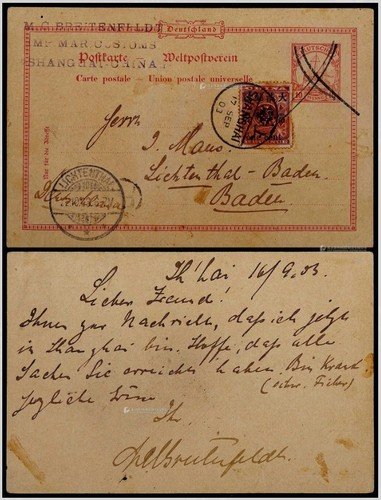 M. G. BREITENFELDT
IMP MAR. CUSTOMS
SHANGHAI-CHINA
Deutschland
Postkarte Weltpostverein
Carte postale Union postale universelle
10
Nur für die Adresse
Herrn
J. Maus.
Lichtenthal-Baden.
Baden
SHANGHAI
17 SEP 03
LICHTENTHAL
Sh'hai 16/9.03.
Lieber Freund!
Ihnen zur Nachricht, dass ich jetzt
in Shanghai bin. Hoffe, dass alle
Sachen Sie erreicht haben. Bin krank
(schw. Fieber)
herzliche Grüsse
Ihr
Breitenfeldt.